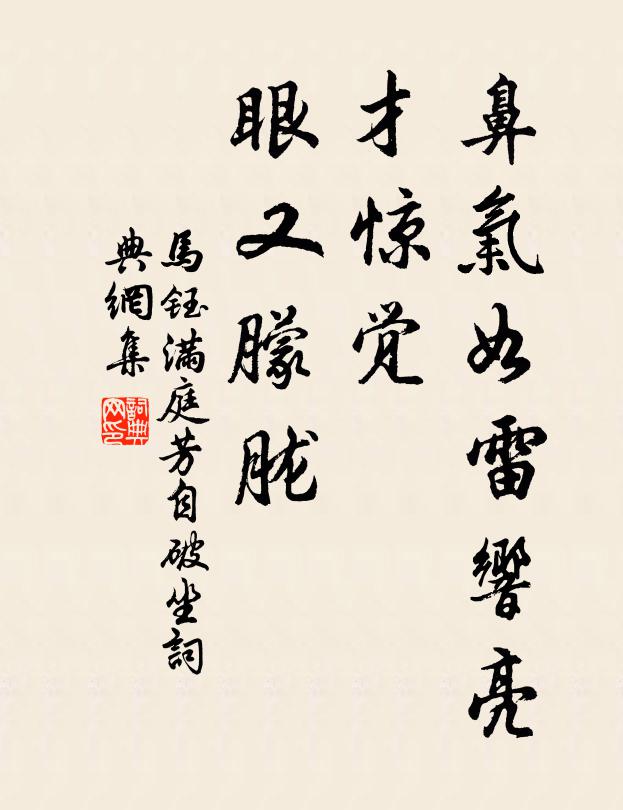 鼻氣如雷響亮
才惊觉
眼又朦胧
馬鈺满庭芳自破坐詞
典網集
詞典
网印